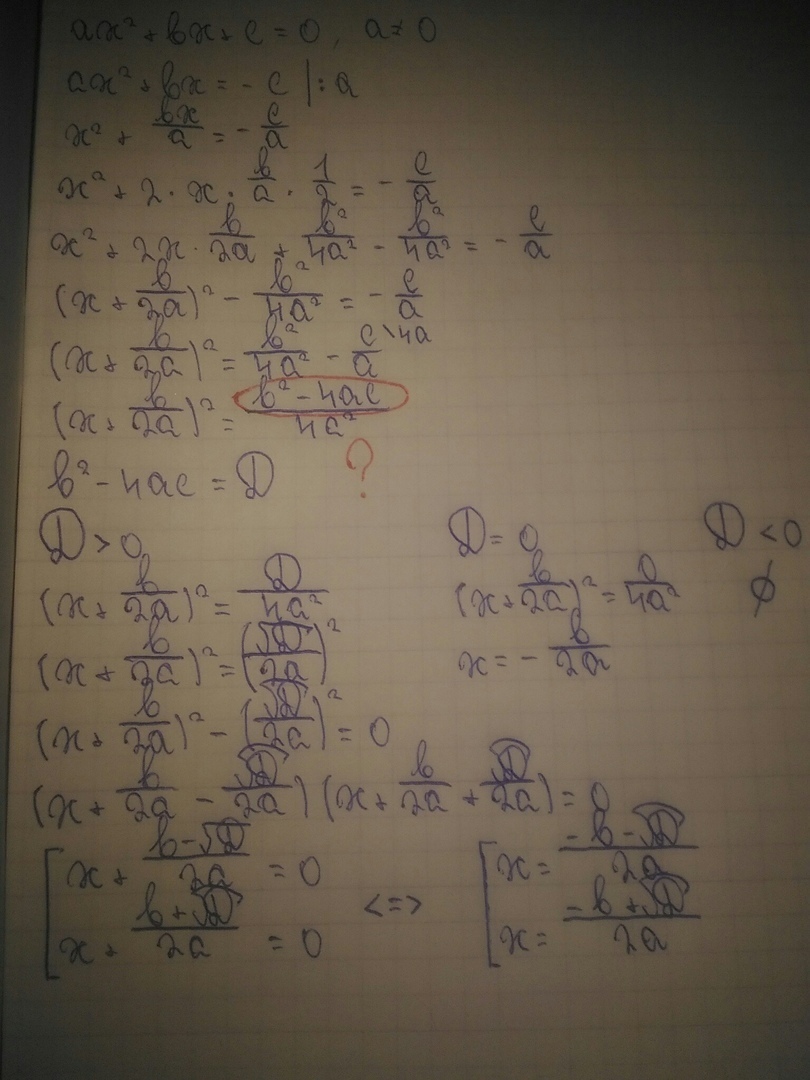 ax² + bx + c = 0, a ≠ 0
ax² + bx = - c | : a
x² + bx/a = - c/a
x² + 2 · x · b/a · 1/2 = - c/a
x² + 2x · b/2a + b²/4a² - b²/4a² = - c/a
(x + b/2a)² - b²/4a² = - c/a
(x + b/2a)² = b²/4a² - c/a \4a
(x + b/2a)² = b² - 4ac/4a²
b² - 4ac = D ?
D > 0 D = 0 D < 0
(x + b/2a)² = D/4a² (x + b/2a)² = 0/4a² ∅
(x + b/2a)² = (√D/2a)² x = - b/2a
(x + b/2a)² - (√D/2a)² = 0
(x + b/2a - √D/2a) (x + b/2a + √D/2a) = 0
[ x + b-√D/2a = 0 [ x = -b-√D/2a
x + b+√D/2a = 0 <=> x = -b+√D/2a